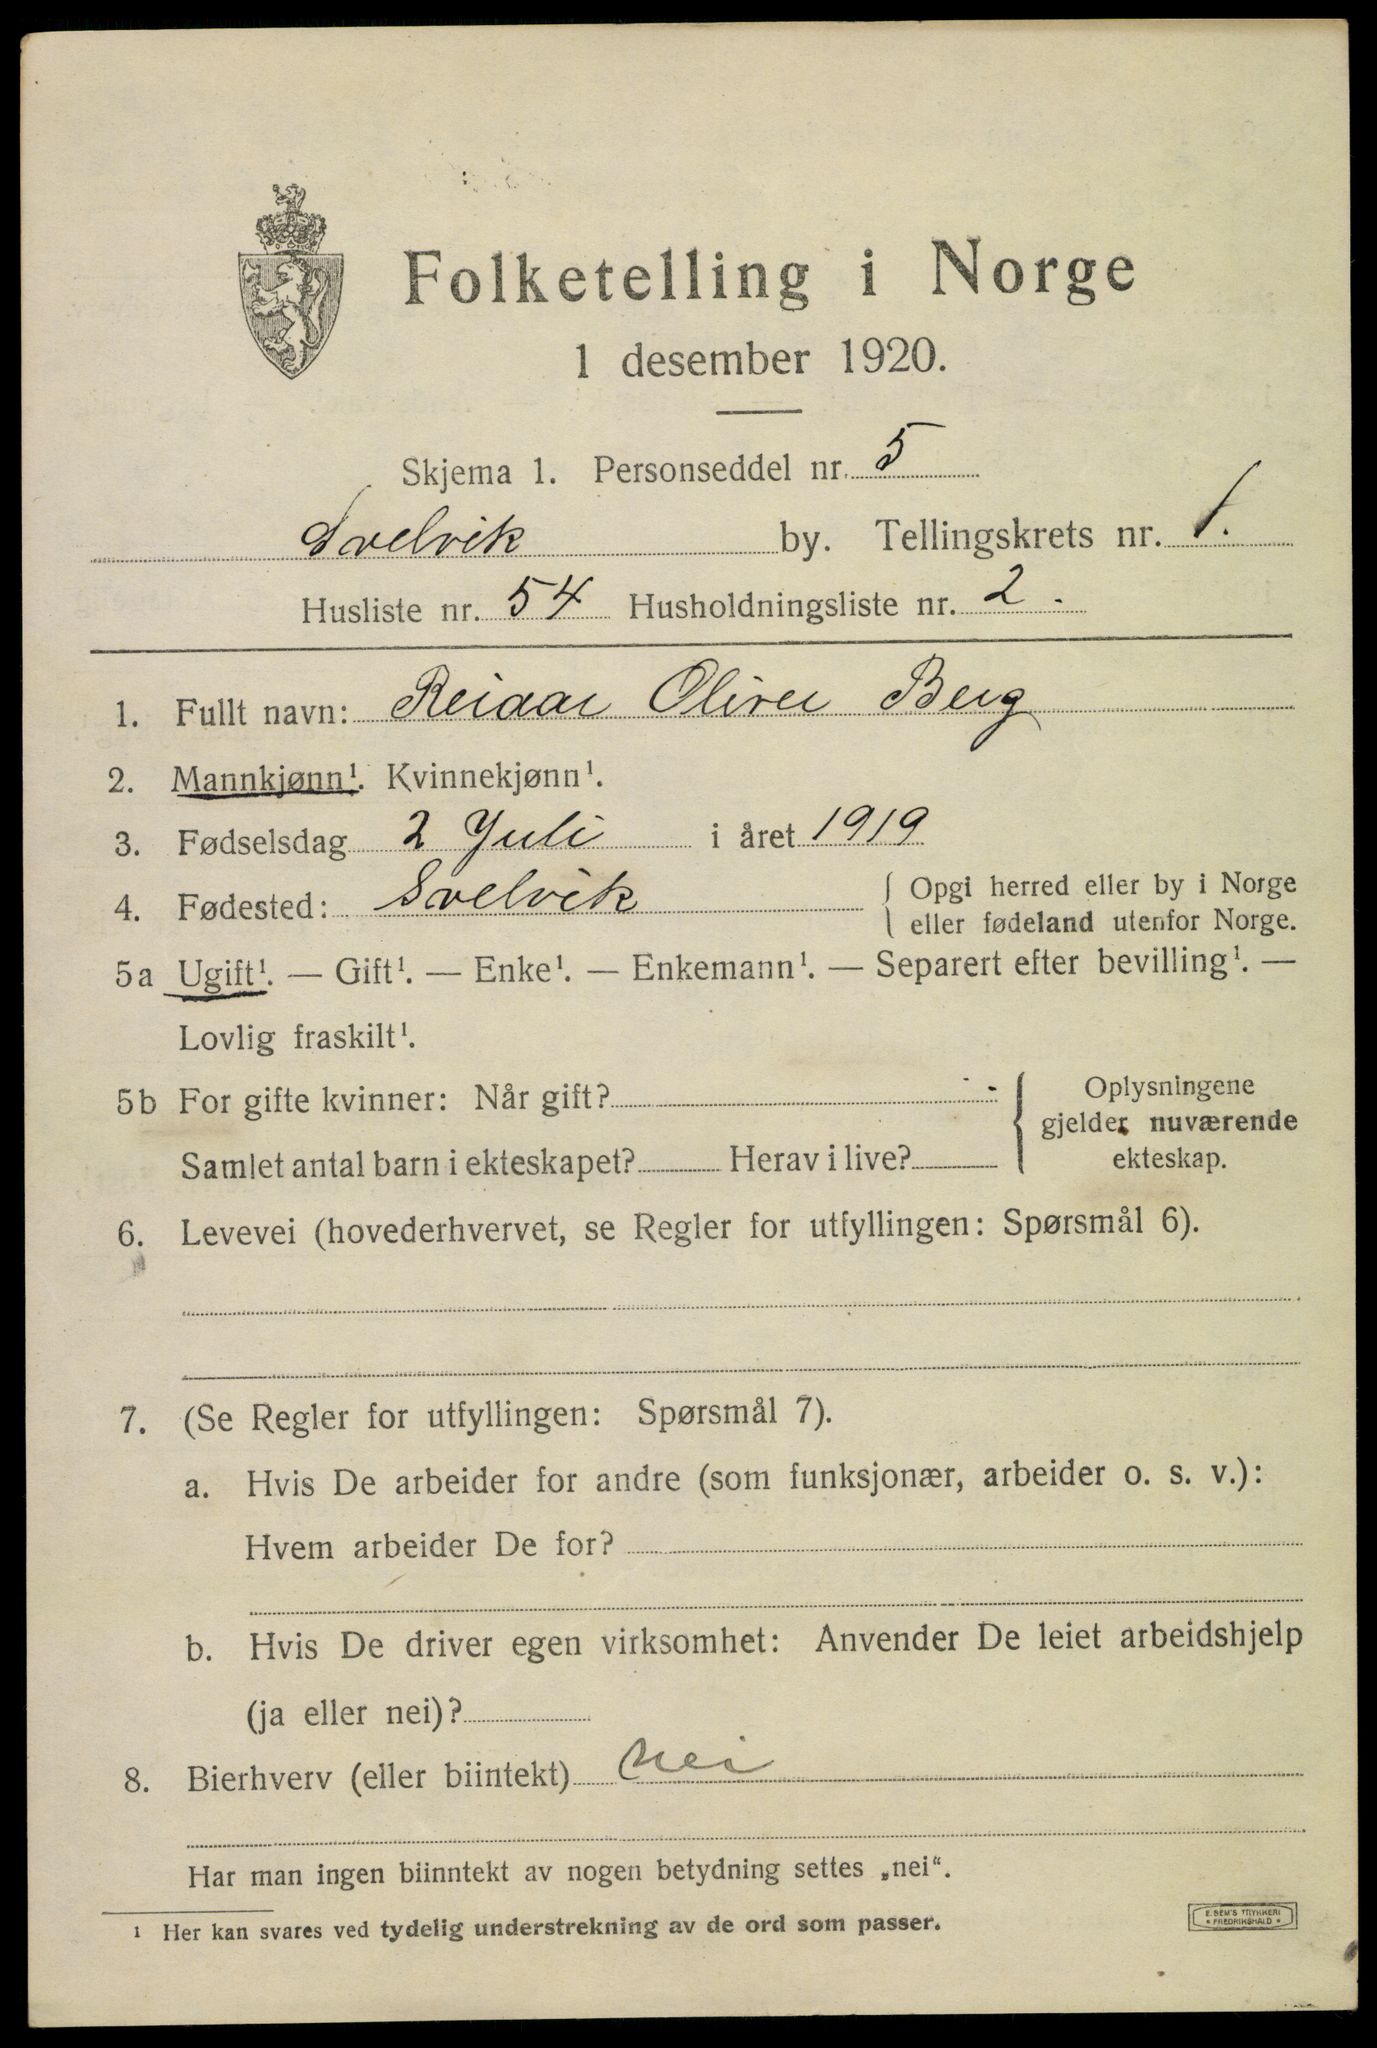 Folketelling i Norge
1 desember 1920.
Skjema 1. Personseddel nr. 5
Svelvik by. Tellingskrets nr. 1.
Husliste nr. 54 Husholdningsliste nr. 2.
1. Fullt navn: Reidar Oliver Berg
2. Mannkjønn¹. Kvinnekjønn¹.
3. Fødselsdag 2 Juli i året 1919
4. Fødested: Svelvik { Opgi herred eller by i Norge
eller fødeland utenfor Norge.
5a Ugift¹. — Gift¹. — Enke¹. — Enkemann¹. — Separert efter bevilling¹. —
Lovlig fraskilt¹.
5b For gifte kvinner: Når gift?
Samlet antal barn i ekteskapet? Herav i live?
{ Oplysningene
gjelder nuværende
ekteskap.
6. Levevei (hovederhvervet, se Regler for utfyllingen: Spørsmål 6).
7. (Se Regler for utfyllingen: Spørsmål 7).
a. Hvis De arbeider for andre (som funksjonær, arbeider o. s. v.):
Hvem arbeider De for?
b. Hvis De driver egen virksomhet: Anvender De leiet arbeidshjelp
(ja eller nei)?
8. Bierhverv (eller biintekt) nei
Har man ingen biinntekt av nogen betydning settes „nei“.
¹ Her kan svares ved tydelig understrekning av de ord som passer.
E. SEM'S TRYKKERI
* FREDRIKSHALD *